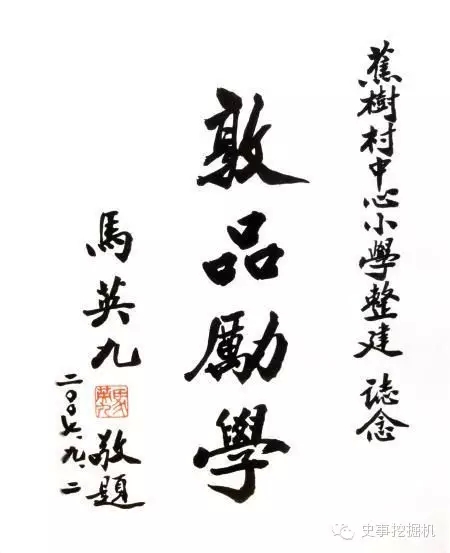 蕉樹村中心小學整建 誌念
敦品勵學
馬英九 敬題
馬英九
二〇〇六.九.二
史事挖掘机